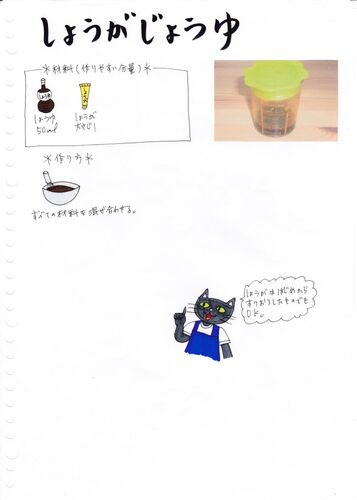 しょうがじょうゆ
*材料(作りやすい分量)*
しょうゆ
しょうゆ
50ml
しょうが
大さじ1
*作り方*
すべての材料を混ぜ合わせる。
しょうがははじめから
すりおろしたものでも
OK。